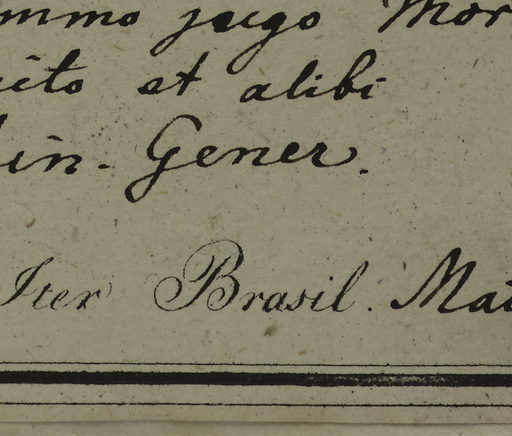 ummo jugo Mor
cito et alibi
in. Gener.
Iter Brasil. Mai